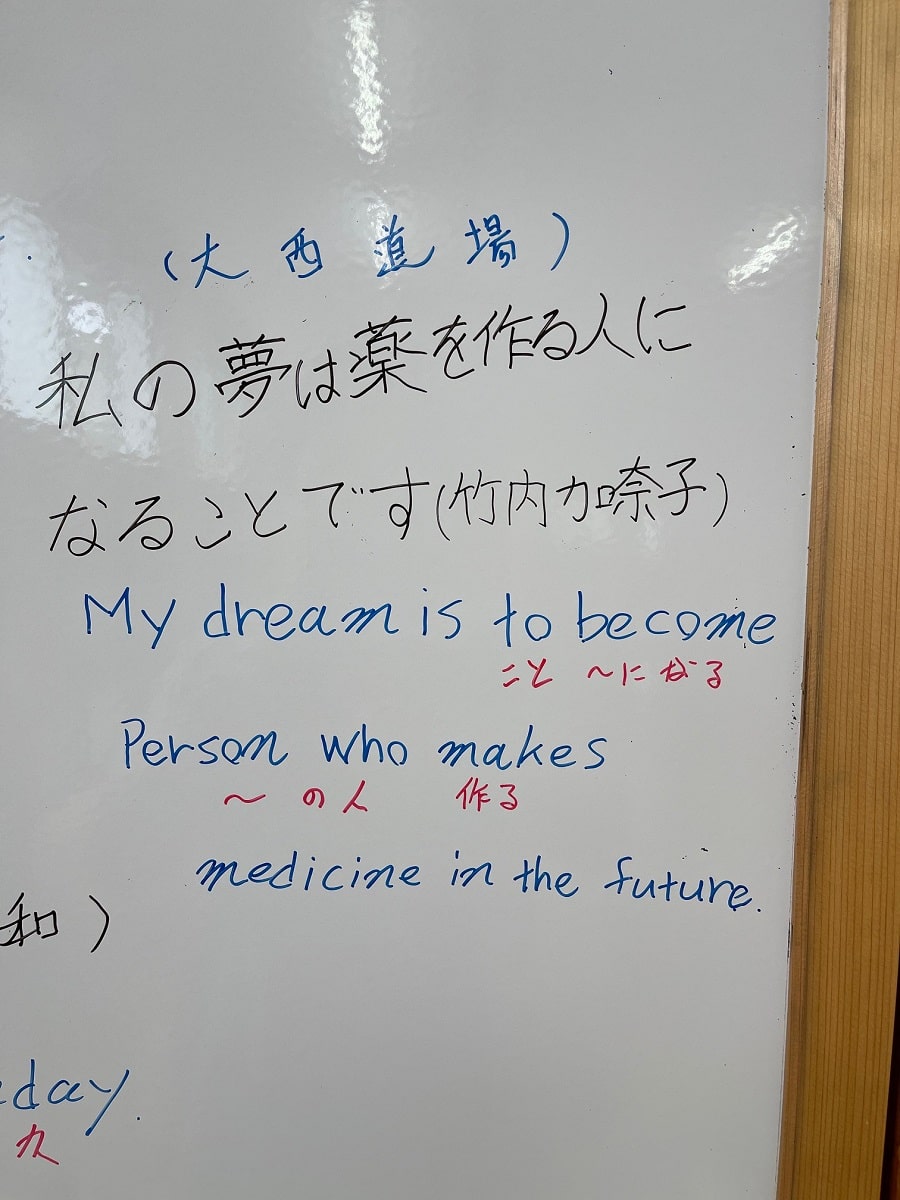 (大西道場)
私の夢は薬を作る人に
なることです(竹内力喨子)
My dream is to become
こと 〜になる
Person who makes
〜の人 作る
medicine in the future.
和)
day.